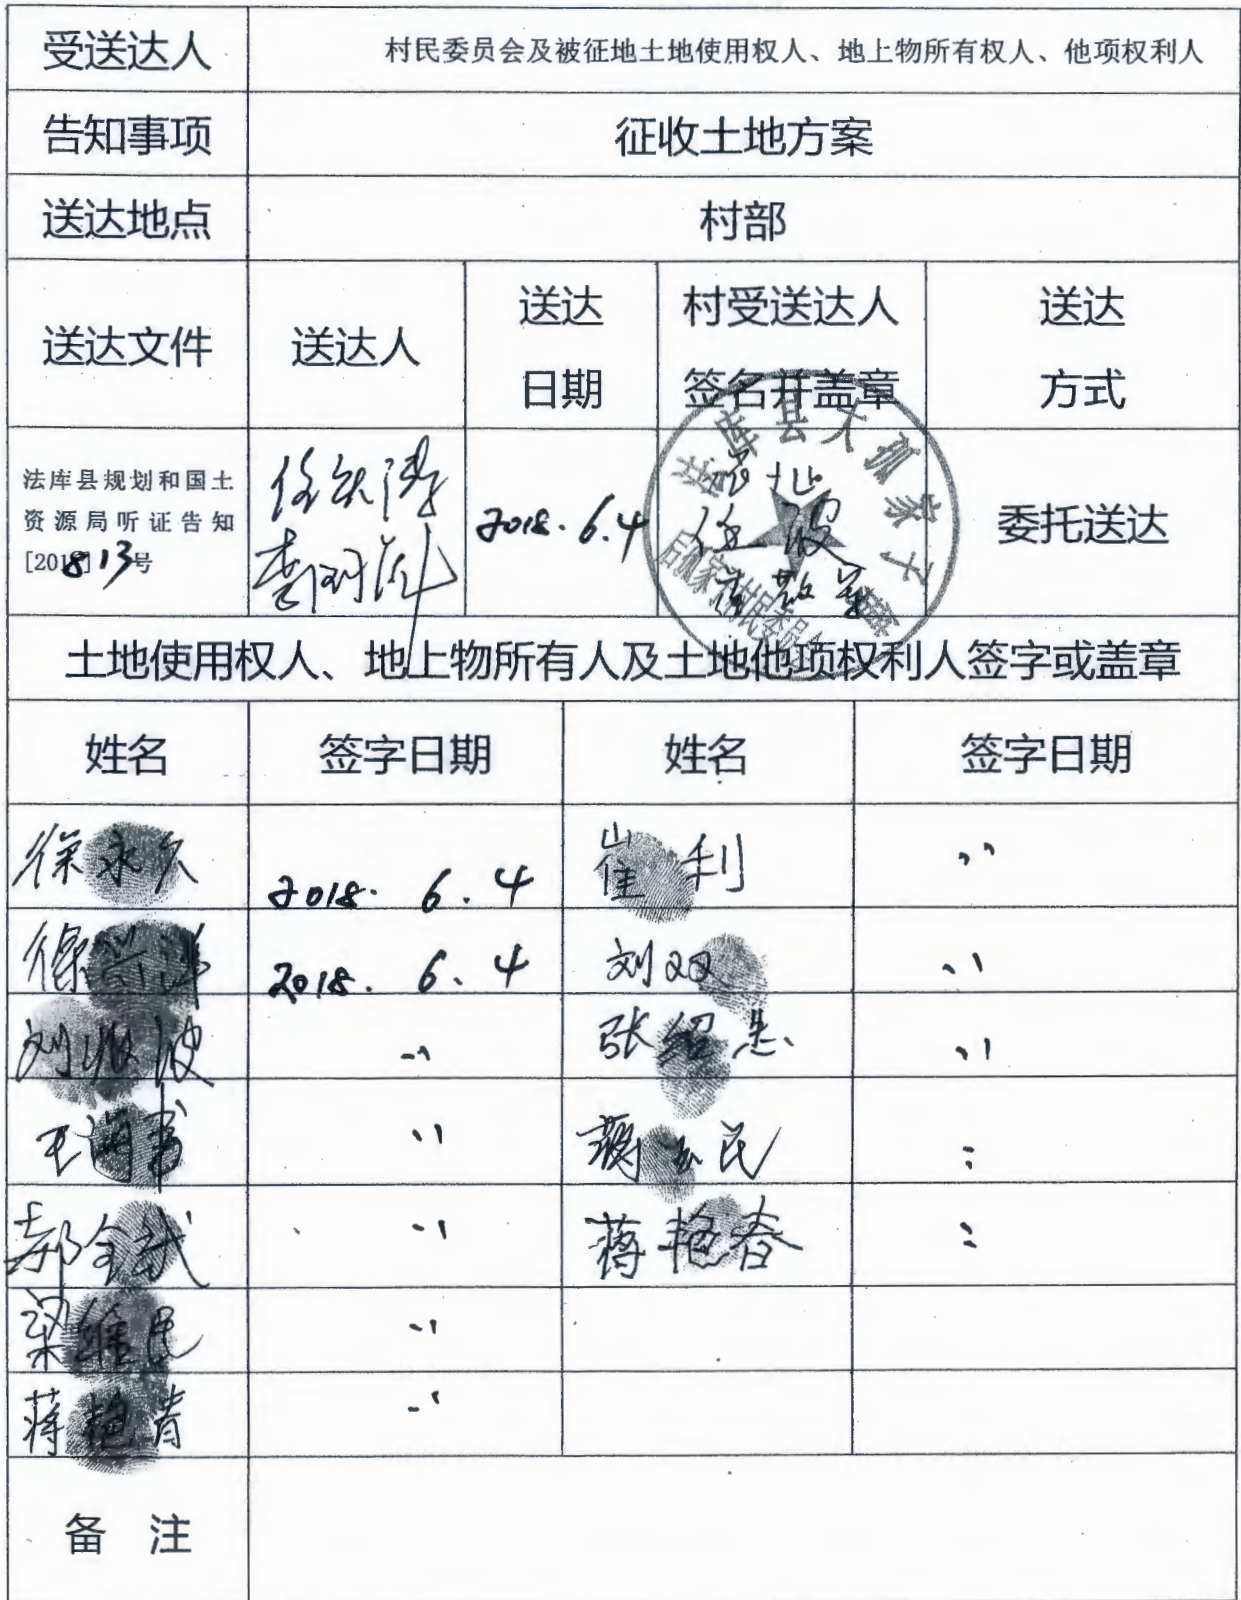 受送达人 村民委员会及被征地土地使用权人、地上物所有权人、他项权利人
告知事项 征收土地方案
送达地点 村部
送达文件 送达人 送达日期 村受送达人签名并盖章 送达方式
法库县规划和国土
资源局听证告知
[2018]13号
2018.6.4
委托送达
土地使用权人、地上物所有人及土地他项权利人签字或盖章
姓名 签字日期 姓名 签字日期
徐永久 2018. 6. 4 崔利 〃
2018. 6. 4 刘双 〃
〃 张绍忠 〃
〃
郝全武 〃 蒋艳春 〃
梁维民 〃
蒋艳青 〃
备 注